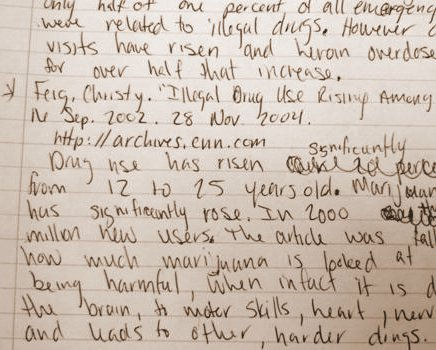 only half of one percent of all emergenc
were related to illegal drugs. However
visits have risen and heroin overdose
for over half that increase.
Feig, Christy. "Illegal Drug Use Rising Among
Sep. 2002. 28 Nov 2004.
http://archives.cnn.com
significantly
Drug use has risen perce
from 12 to 25 years old. Marijuan
has significantly rose. In 2000
million new users. The article was tal
how much marijuana is looked at
being harmful, when intact it is d
the brain, to motor skills, heart, nerv
and leads to other, harder drugs.